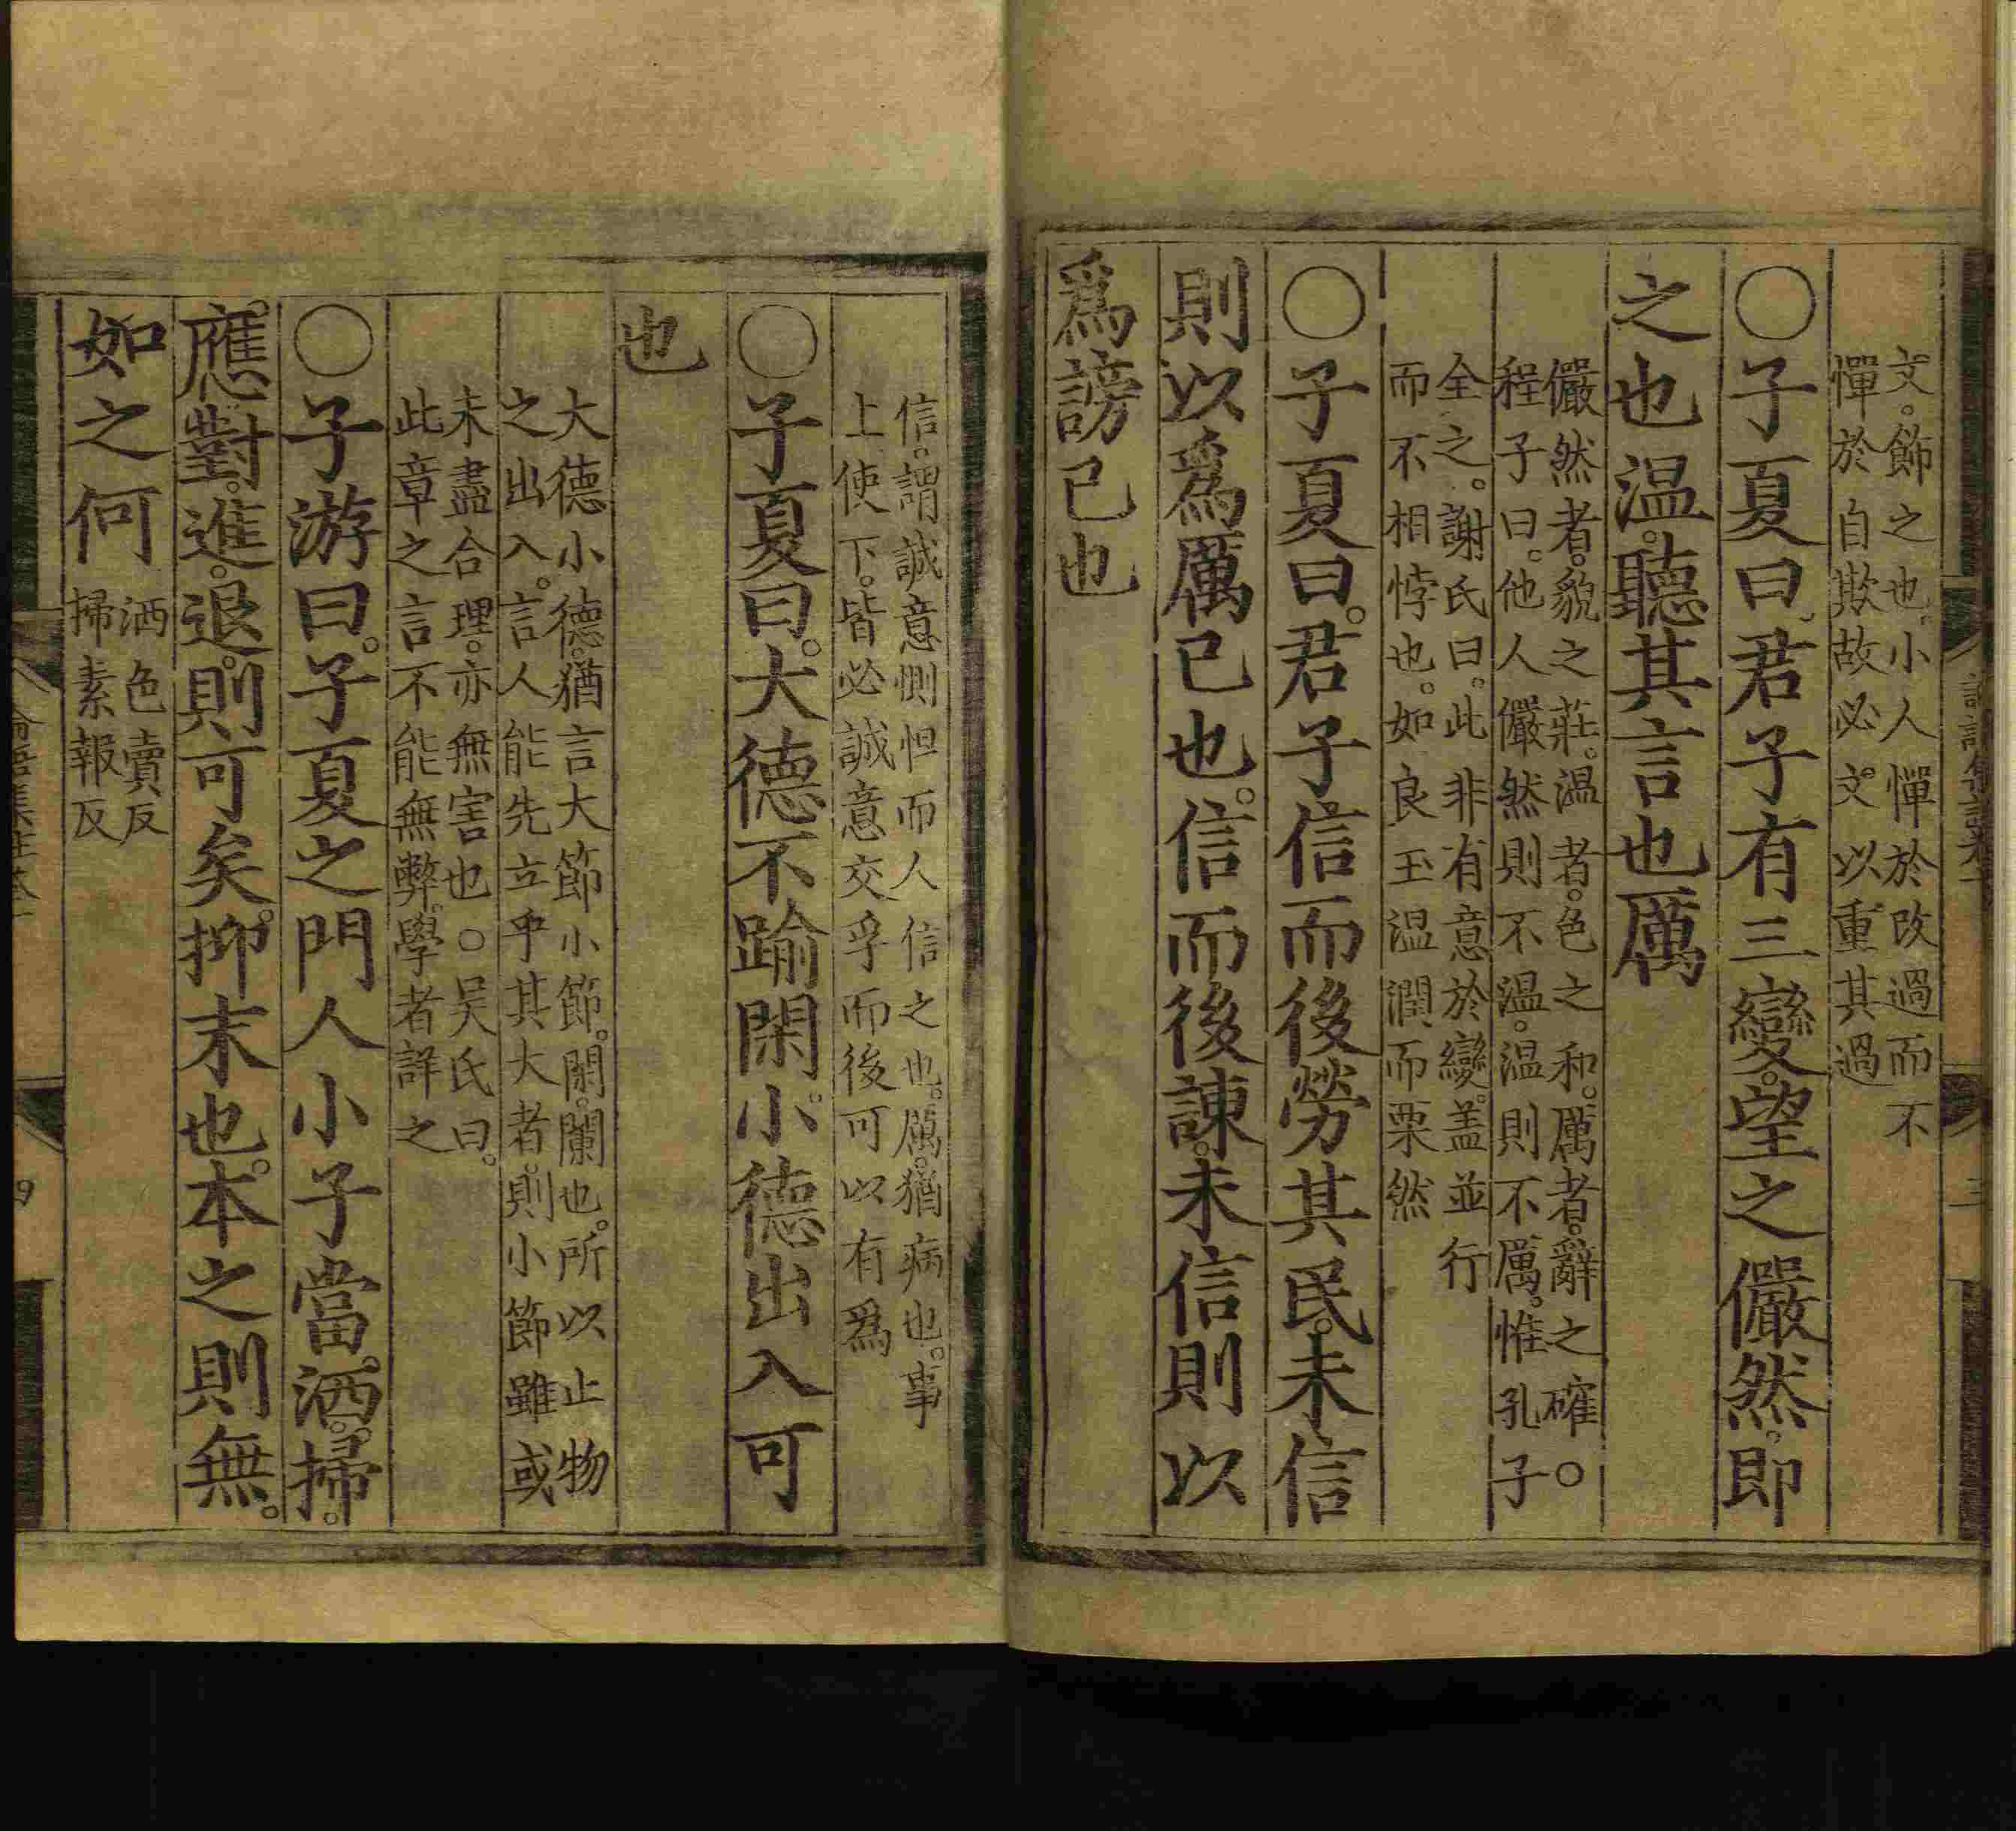 文。飾之也。小人憚於改過而不
憚於自欺故必文。以重其過
〇子夏曰。君子有三變。望之儼然。即
之也温。聽其言也厲
儼然者。貌之莊。温者。色之和。厲者。辭之確。〇
程子曰。他人儼然則不温。温則不厲。惟孔子
全之。謝氏曰。此非有意於變。盖並行
而不相悖也。如良玉温潤而栗然
〇子夏曰。君子信而後勞其民。未信
則以爲厲已也。信而後諫。未信則以
爲謗已也
信。謂誠意惻怛而人信之也。厲。猶病也。事
上使下。皆必誠意交孚而後可以有爲
〇子夏曰。大德不踰閑。小德出入可
也
大德小德。猶言大節小節。閑。闌也。所以止物
之出入。言人能先立乎其大者。則小節雖或
未盡合理。亦無害也。〇吴氏曰。
此章之言不能無弊。學者詳之
〇子游曰。子夏之門人小子當。洒。掃。
應。對。進。退。則可矣。抑末也。本之則無。
如之何
洒色賣反
掃素報反
四